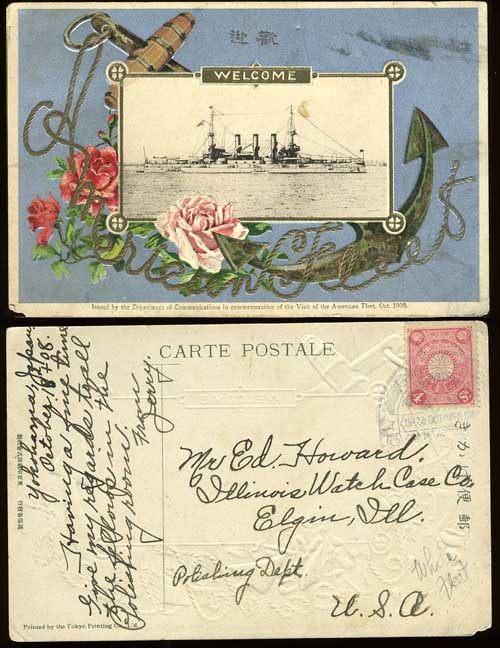 歡迎
WELCOME
American Fleet
Issued by the Department of Communications in commemoration of the Visit of the American Fleet, Oct. 1908.
CARTE POSTALE
Yokohama, Japan
October 18th 08.
Having a fine time
Give my regards to all
the fellows in the
Polishing room.
From
Jerry.
Mr Ed. Howard.
Illinois Watch Case Co.
Elgin, Ill.
Polishing Dept.
U.S.A.
きかは便郵
White
Fleet
Printed by the Tokyo Printing Co. Ltd.